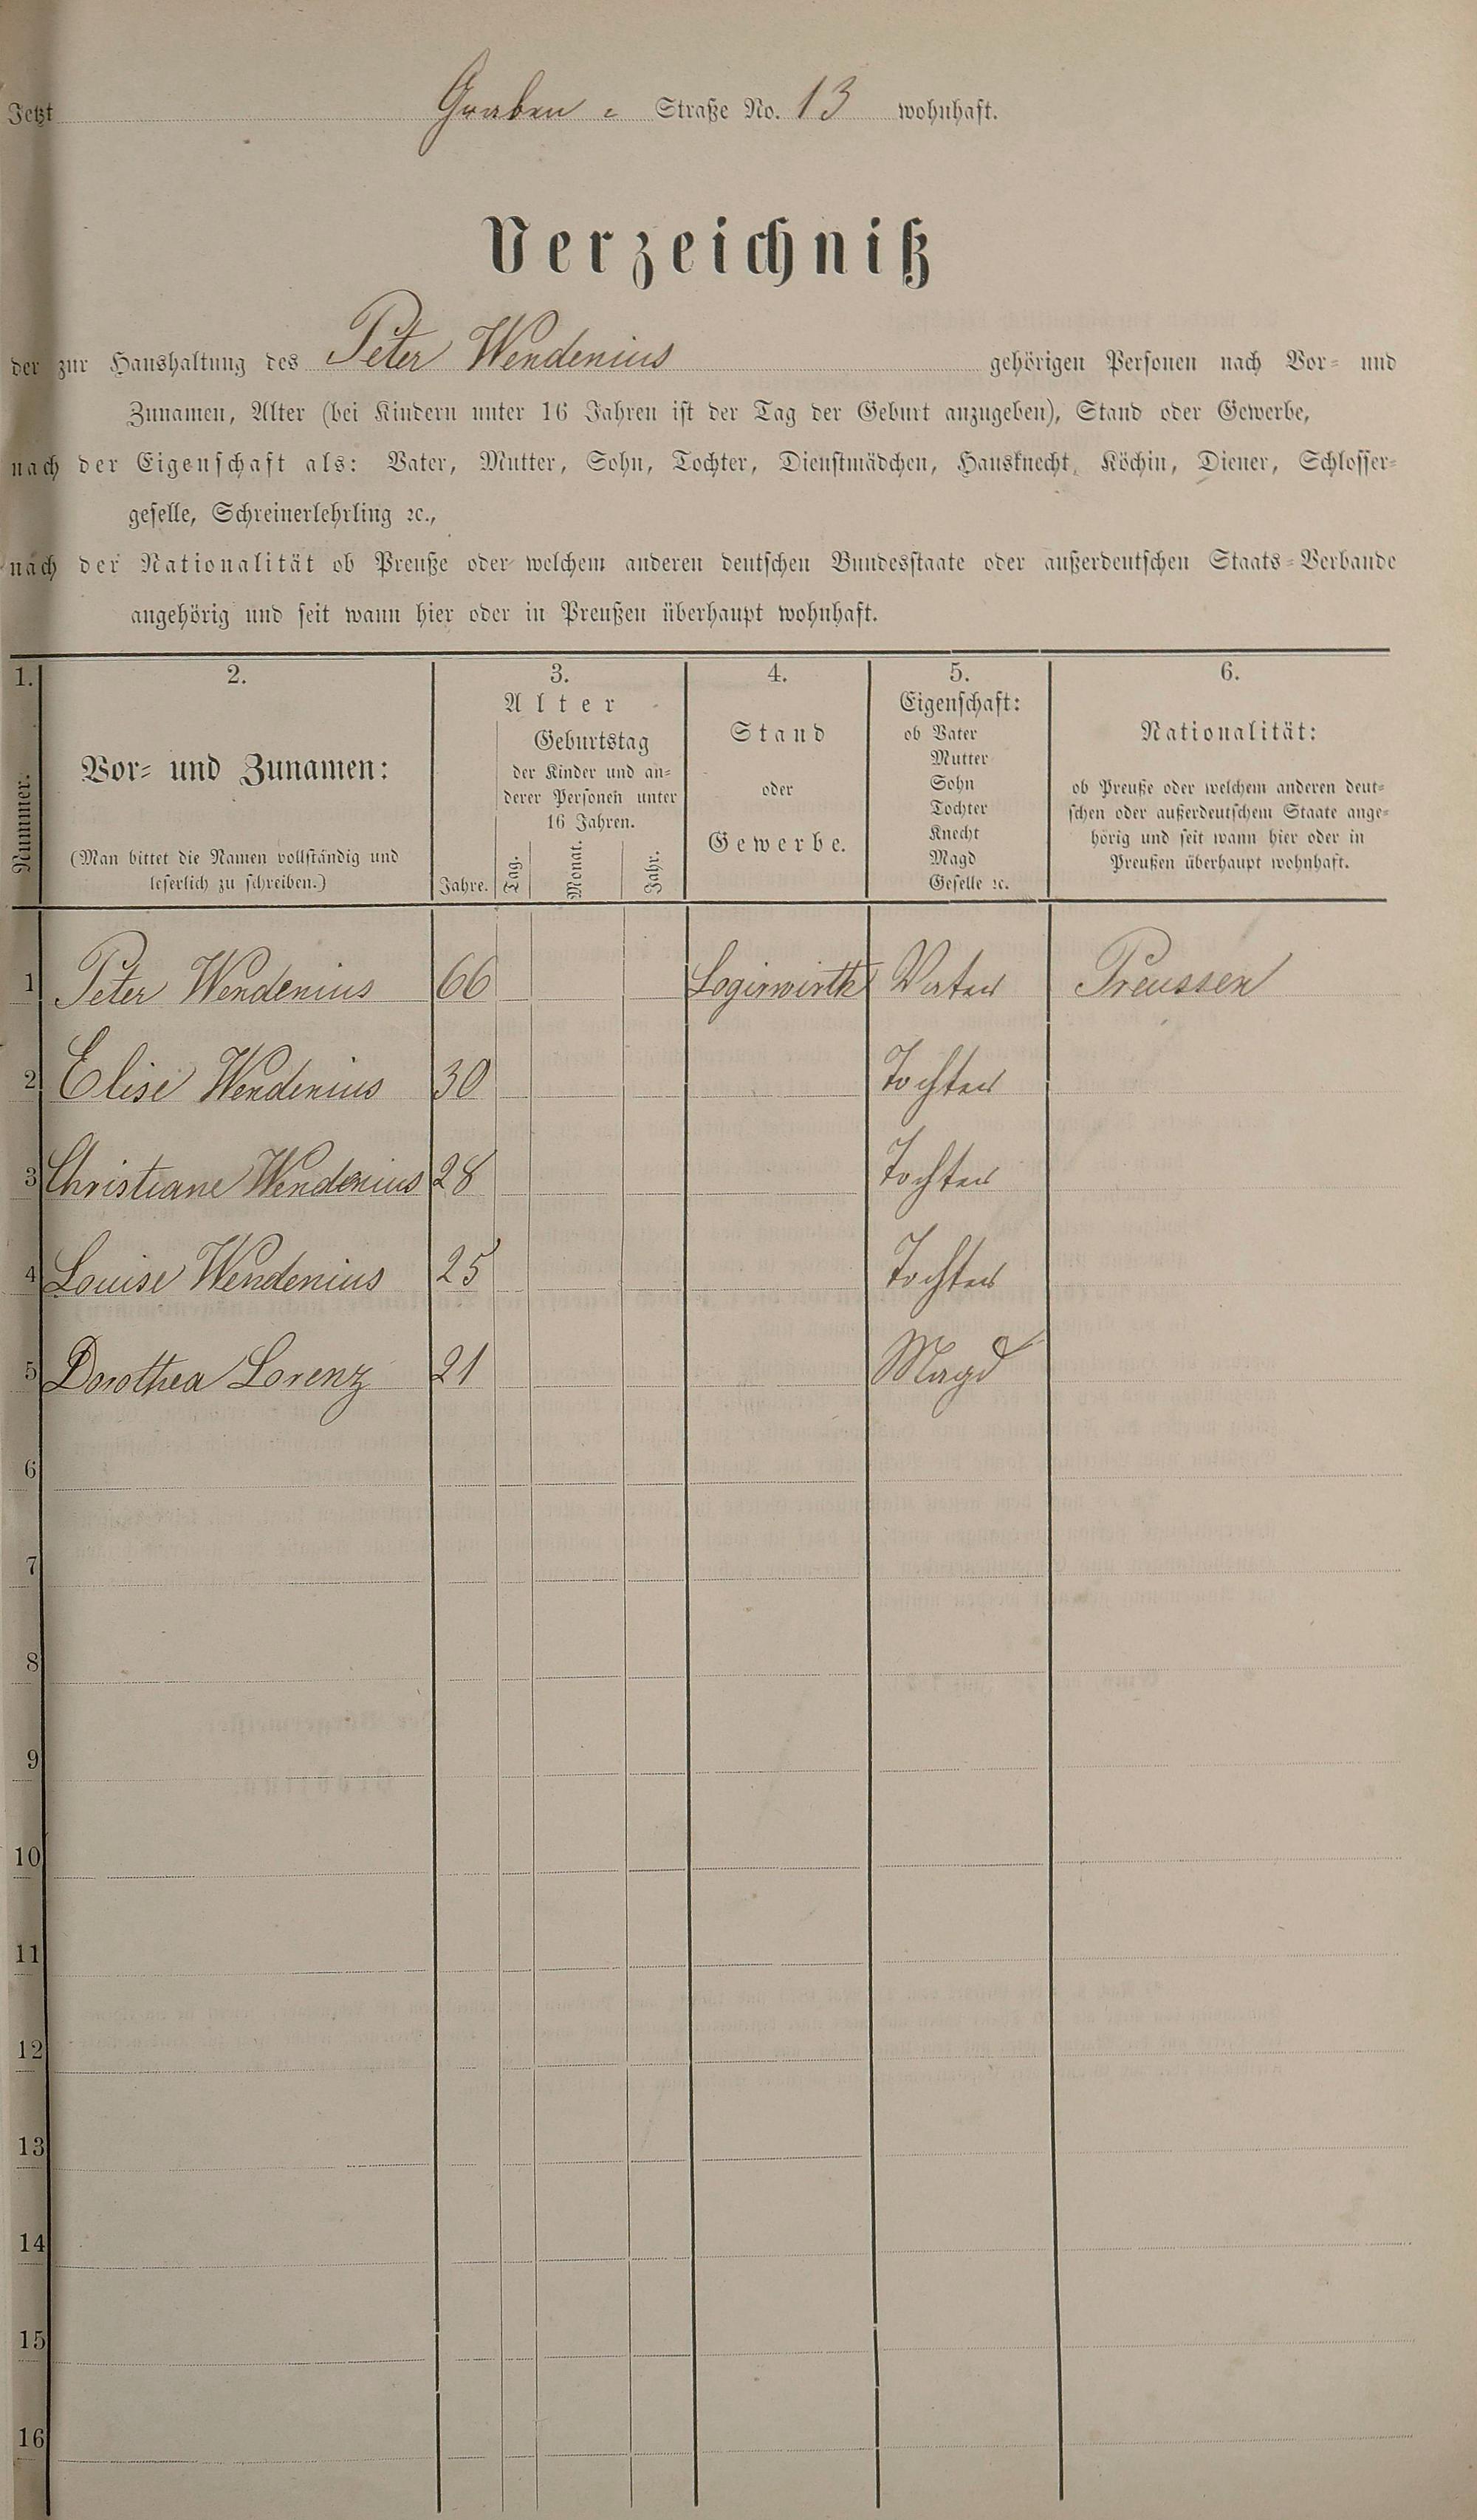 Jetzt Graben = Straße No. 13 wohnhaft.
Verzeichniß
der zur Haushaltung des Peter Wendenius gehörigen Personen nach Vor= und
Zunamen, Alter (bei Kindern unter 16 Jahren ist der Tag der Geburt anzugeben), Stand oder Gewerbe,
nach der Eigenschaft als: Vater, Mutter, Sohn, Tochter, Dienstmädchen, Hausknecht, Köchin, Diener, Schlosser=
geselle, Schreinerlehrling ꝛc.,
nach der Nationalität ob Preuße oder welchem anderen deutschen Bundesstaate oder außerdeutschen Staats=Verbande
angehörig und seit wann hier oder in Preußen überhaupt wohnhaft.
1.
Nummer.
2.
Vor= und Zunamen:
(Man bittet die Namen vollständig und
leserlich zu schreiben.)
3.
Alter
Geburtstag
der Kinder und an=
derer Personen unter
16 Jahren.
Jahre. Tag. Monat. Jahr.
4.
Stand
oder
Gewerbe.
5.
Eigenschaft:
ob Vater
Mutter
Sohn
Tochter
Knecht
Magd
Geselle ꝛc.
6.
Nationalität:
ob Preuße oder welchem anderen deut=
schen oder außerdeutschem Staate ange=
hörig und seit wann hier oder in
Preußen überhaupt wohnhaft.
1 Peter Wendenius 66 Logirwirth Vater Preussen
2 Elise Wendenius 30 Tochter
3 Christiane Wendenius 28 Tochter
4 Louise Wendenius 25 Tochter
5 Dorothea Lorenz 21 Magd
6
7
8
9
10
11
12
13
14
15
16